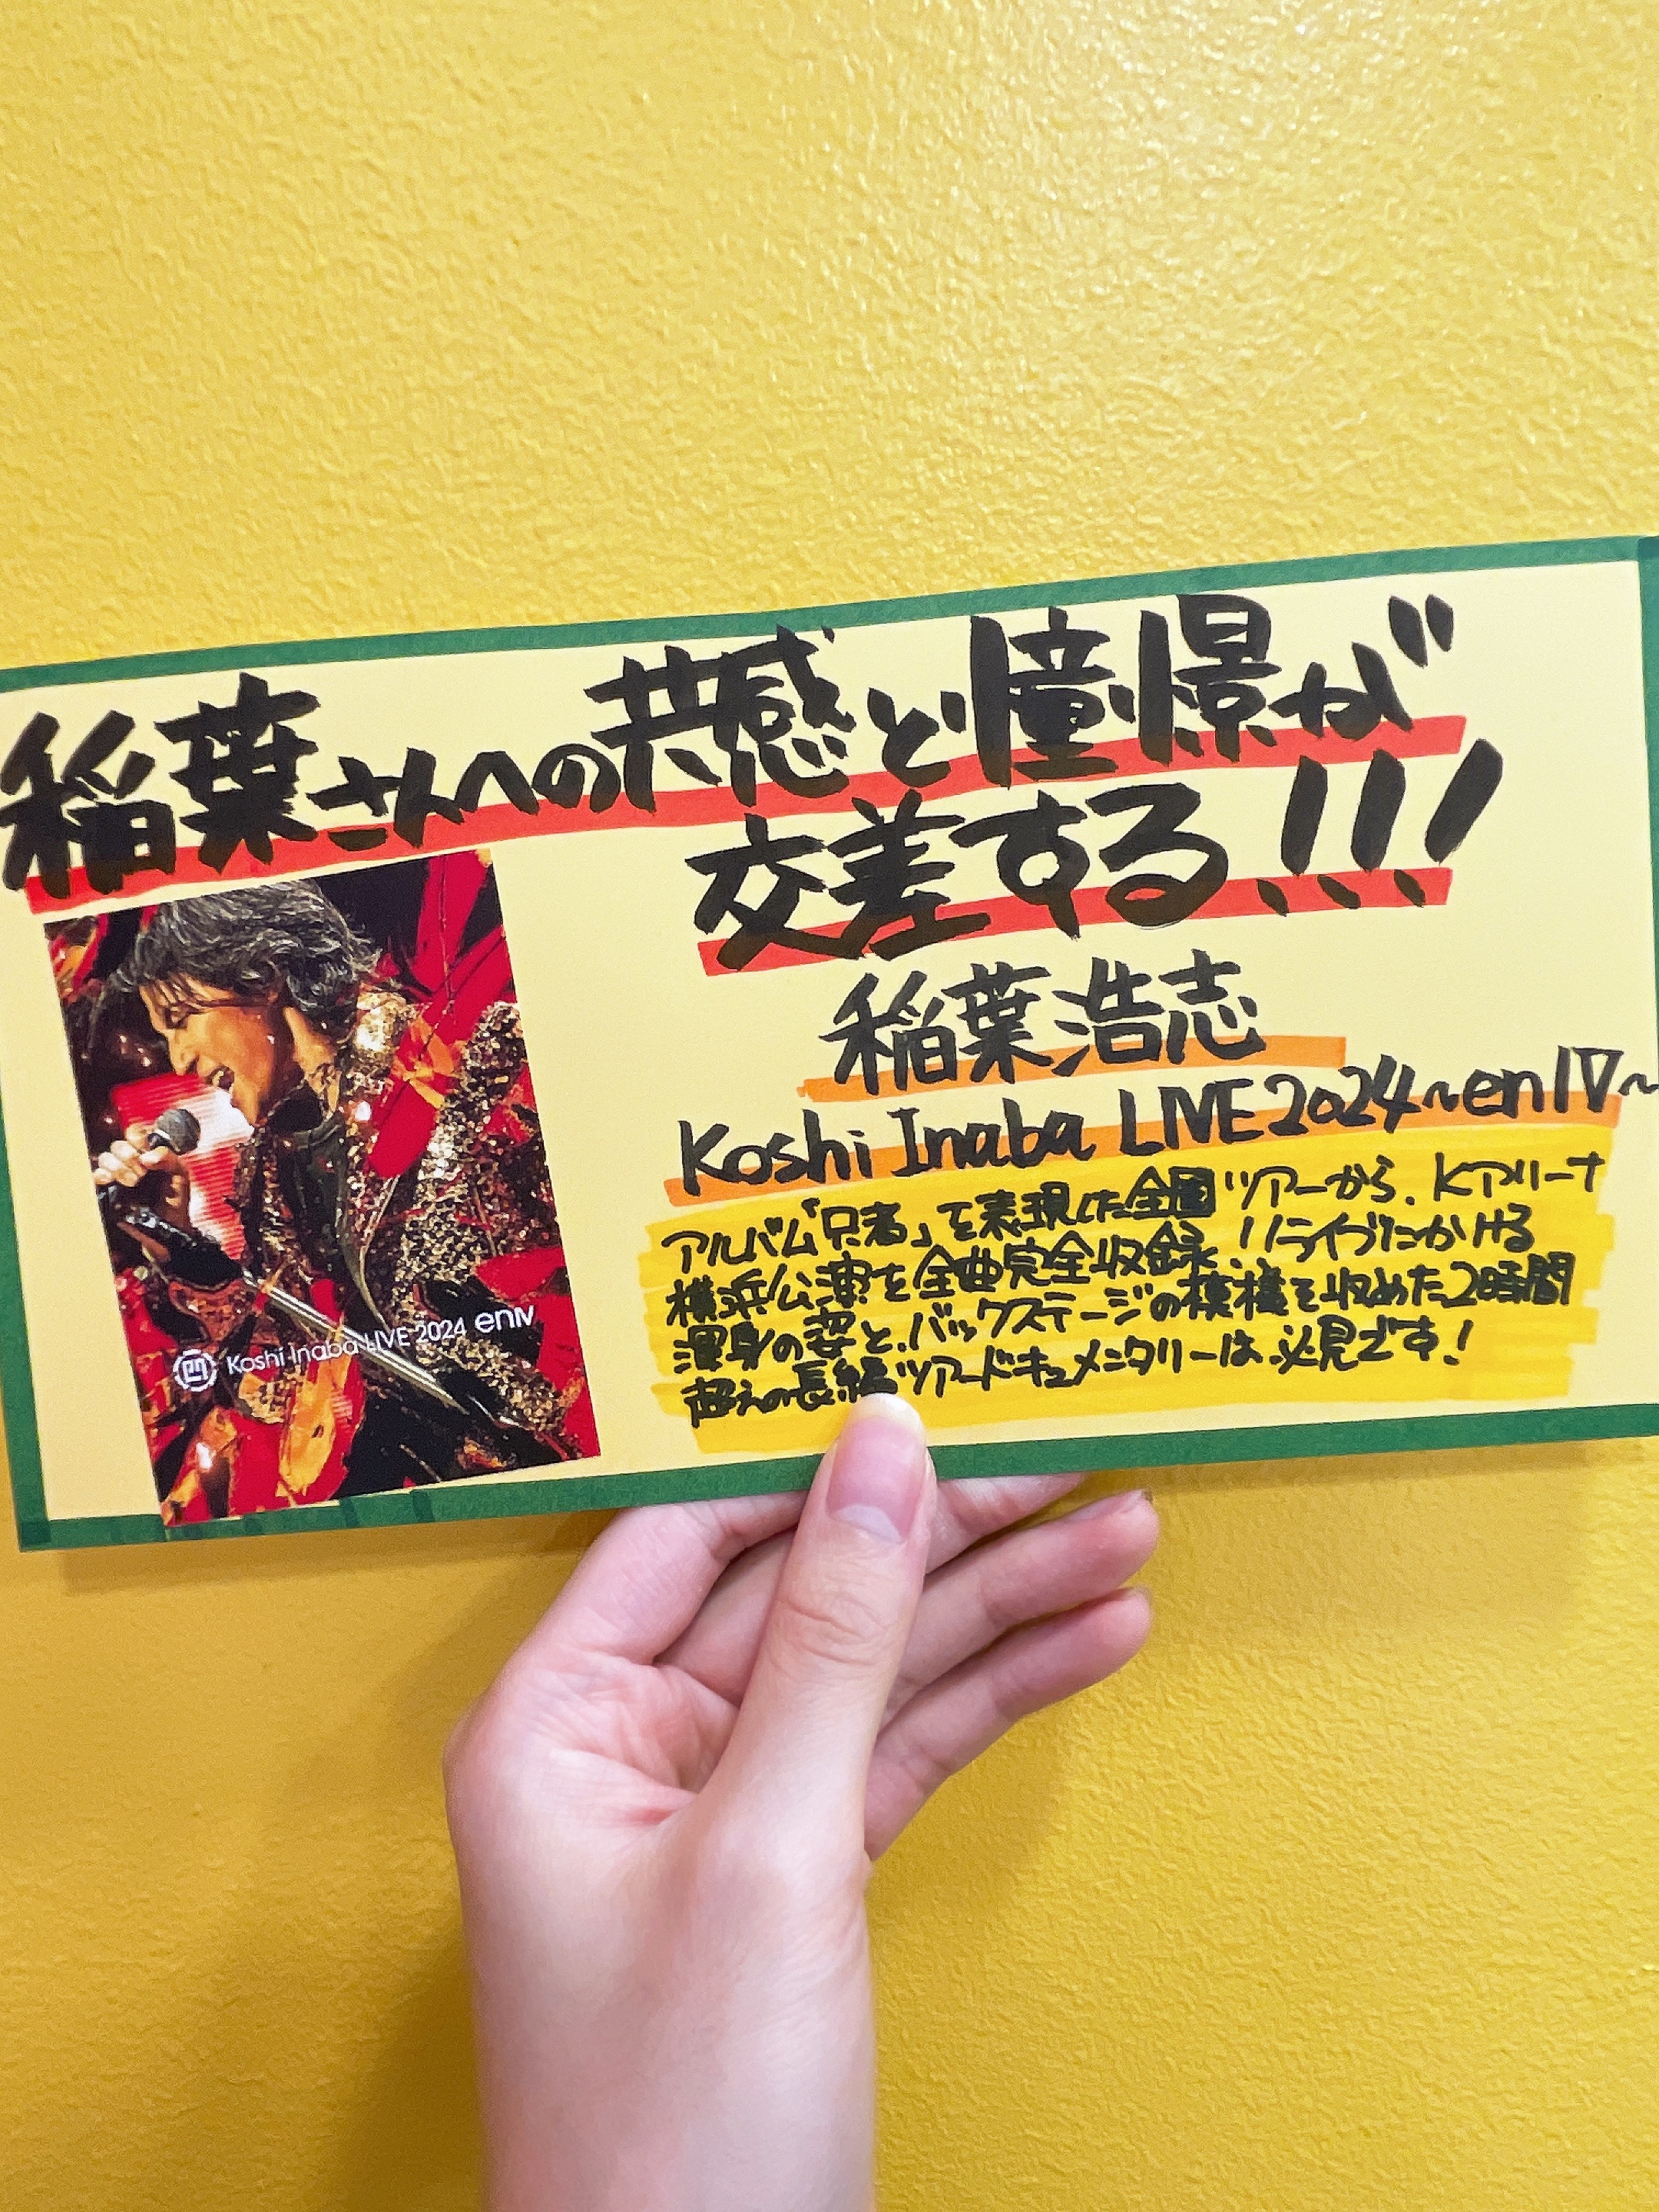 稲葉さんへの共感と憧憬が
交差する!!!
稲葉浩志
Koshi Inaba LIVE 2024~enⅣ~
アルバム「只者」を表現した全国ツアーから、Kアリーナ
横浜公演を全曲完全収録!!ライブにかける
渾身の姿と、バックステージの模様を収めた2時間
超えの長編ツアードキュメンタリーは、必見です!
Koshi Inaba LIVE 2024 enⅣ